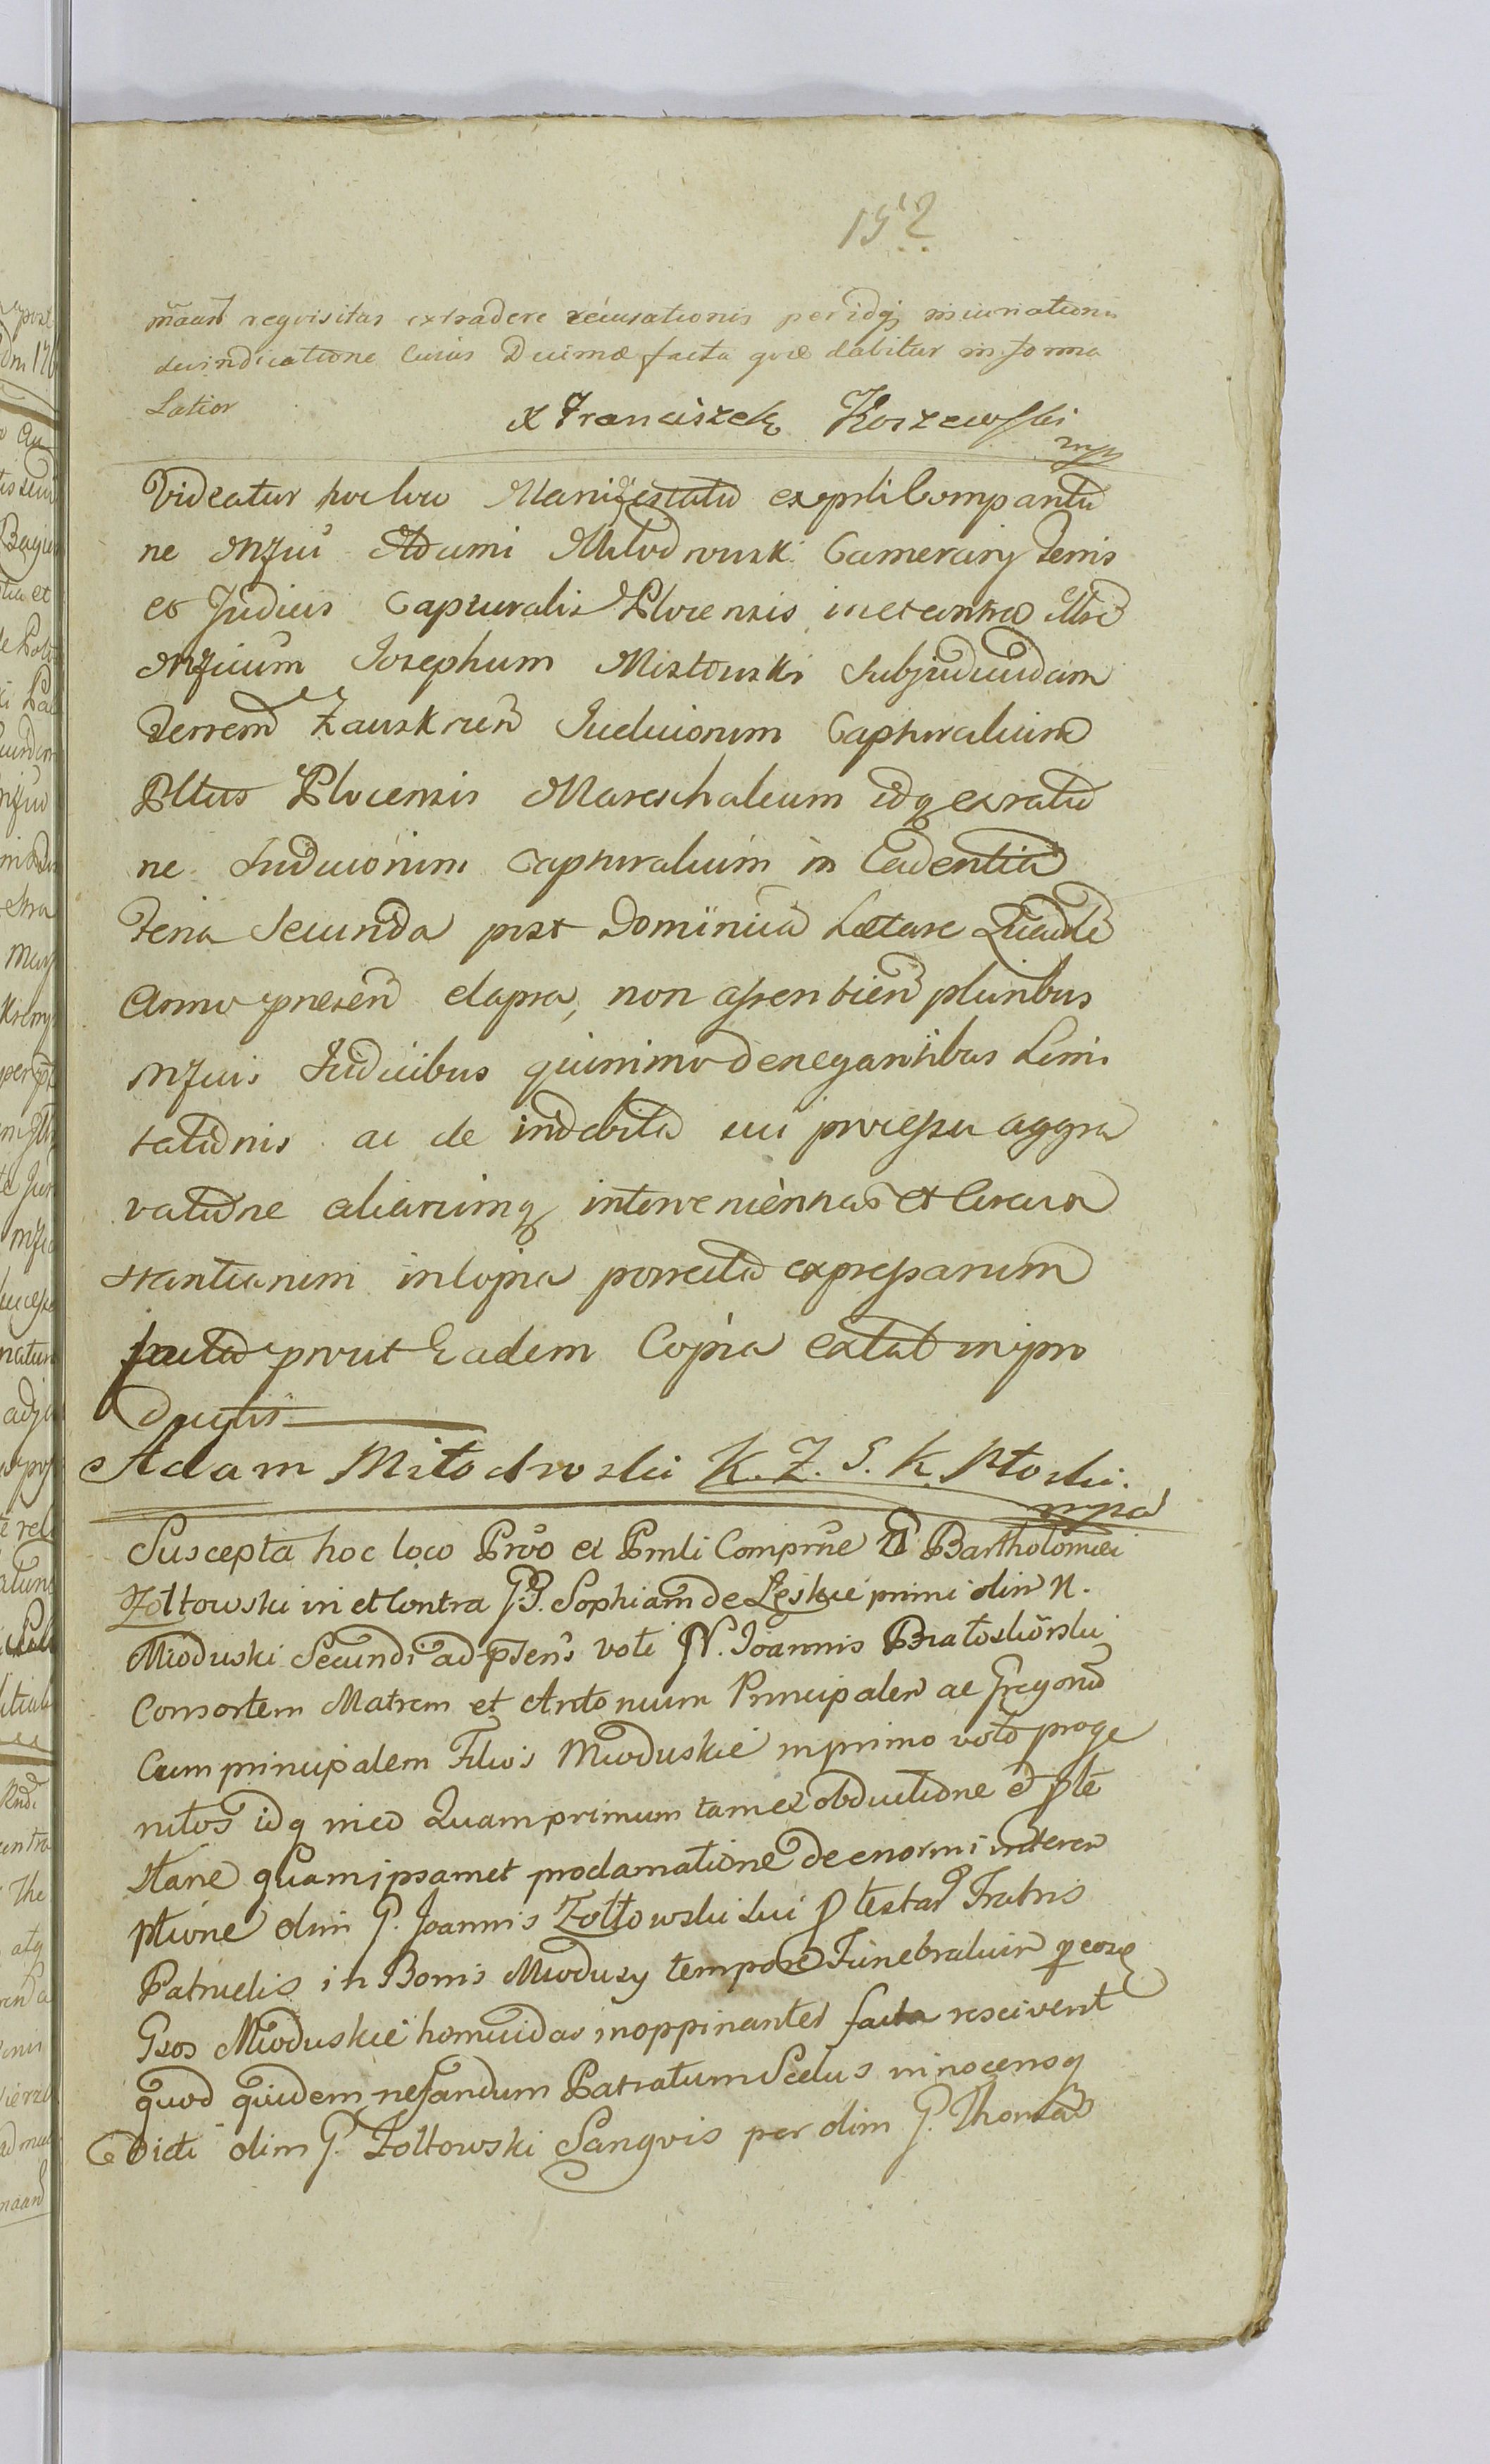 152
requisitas extradere recusationis per idq iniuriationis
devindicatione Cuius Decimae facta quae dabitur in forma
Latior
X Franciszek Korzewski
mpp
Videatur hoc loco Manifestatio ex prsli Comparitio
ne Mfici Adami Milodrowski Camerarij Terris
et Judicis Capturalis Plocensis in et contra
Mficum Josephum Mistowski Subjudicem
Terrem Zauskren Judiciorum Capturalium
Pltus Plocensis Mareschalcum idq ex ratio
ne Judiciorum Capturalium in Cadentia
Feria Secunda post Dominica Laetare
Anno praesen elapsa, non assentien pluribus
Mficis Judicibus quinimo denegantibus Limi
tationis ac de indebita sui processu aggra
vatione aliarumq intervenientias et Circum
stantiarum in Copia porrecta expressarum
facta prout Eadem Copia extat in pro
ductis
Adam Miłodroski K. Z. S. K. Płoski.
mpa
Suscepta hoc loco Prvo ex Prnli Comprne Bartholomei
Żołtowski in et Contra G. Sophiam de Leskie primi olim N.
Mioduski Secundi ad psens voti N. Joannis Białoskórski
Consortem Matrem et Antonium Principalem ac Gregoriu
Cum principalem Filios Mioduskie in primo voto proge
nitos idq nied Quamprimum tam ex obductione
quam ipsamet proclamatione de enormi interem
ptione olim G. Joannis Żołtowski Sui Fratris
Patruelis in Bonis Mioduzy tempore Funebralium p eosq
Gsos Mioduskie homicidas inoppinanter facta resciverit
quod quidem nefandum Patratum Scelus innocensq
Dicti olim G. Żołtowski Sangvis per olim G. Thomam